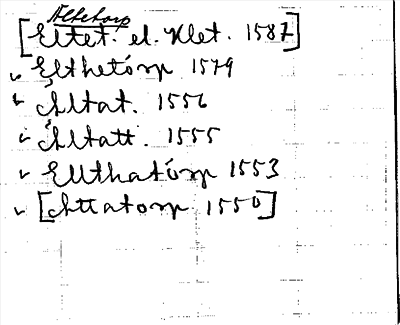 Altetorp
[Eltet. el. Klet. 1587]
Elthetórp 1579
Altat. 1556
Åltatt. 1555
Ellthatórp 1553
[Attatorp 1550]